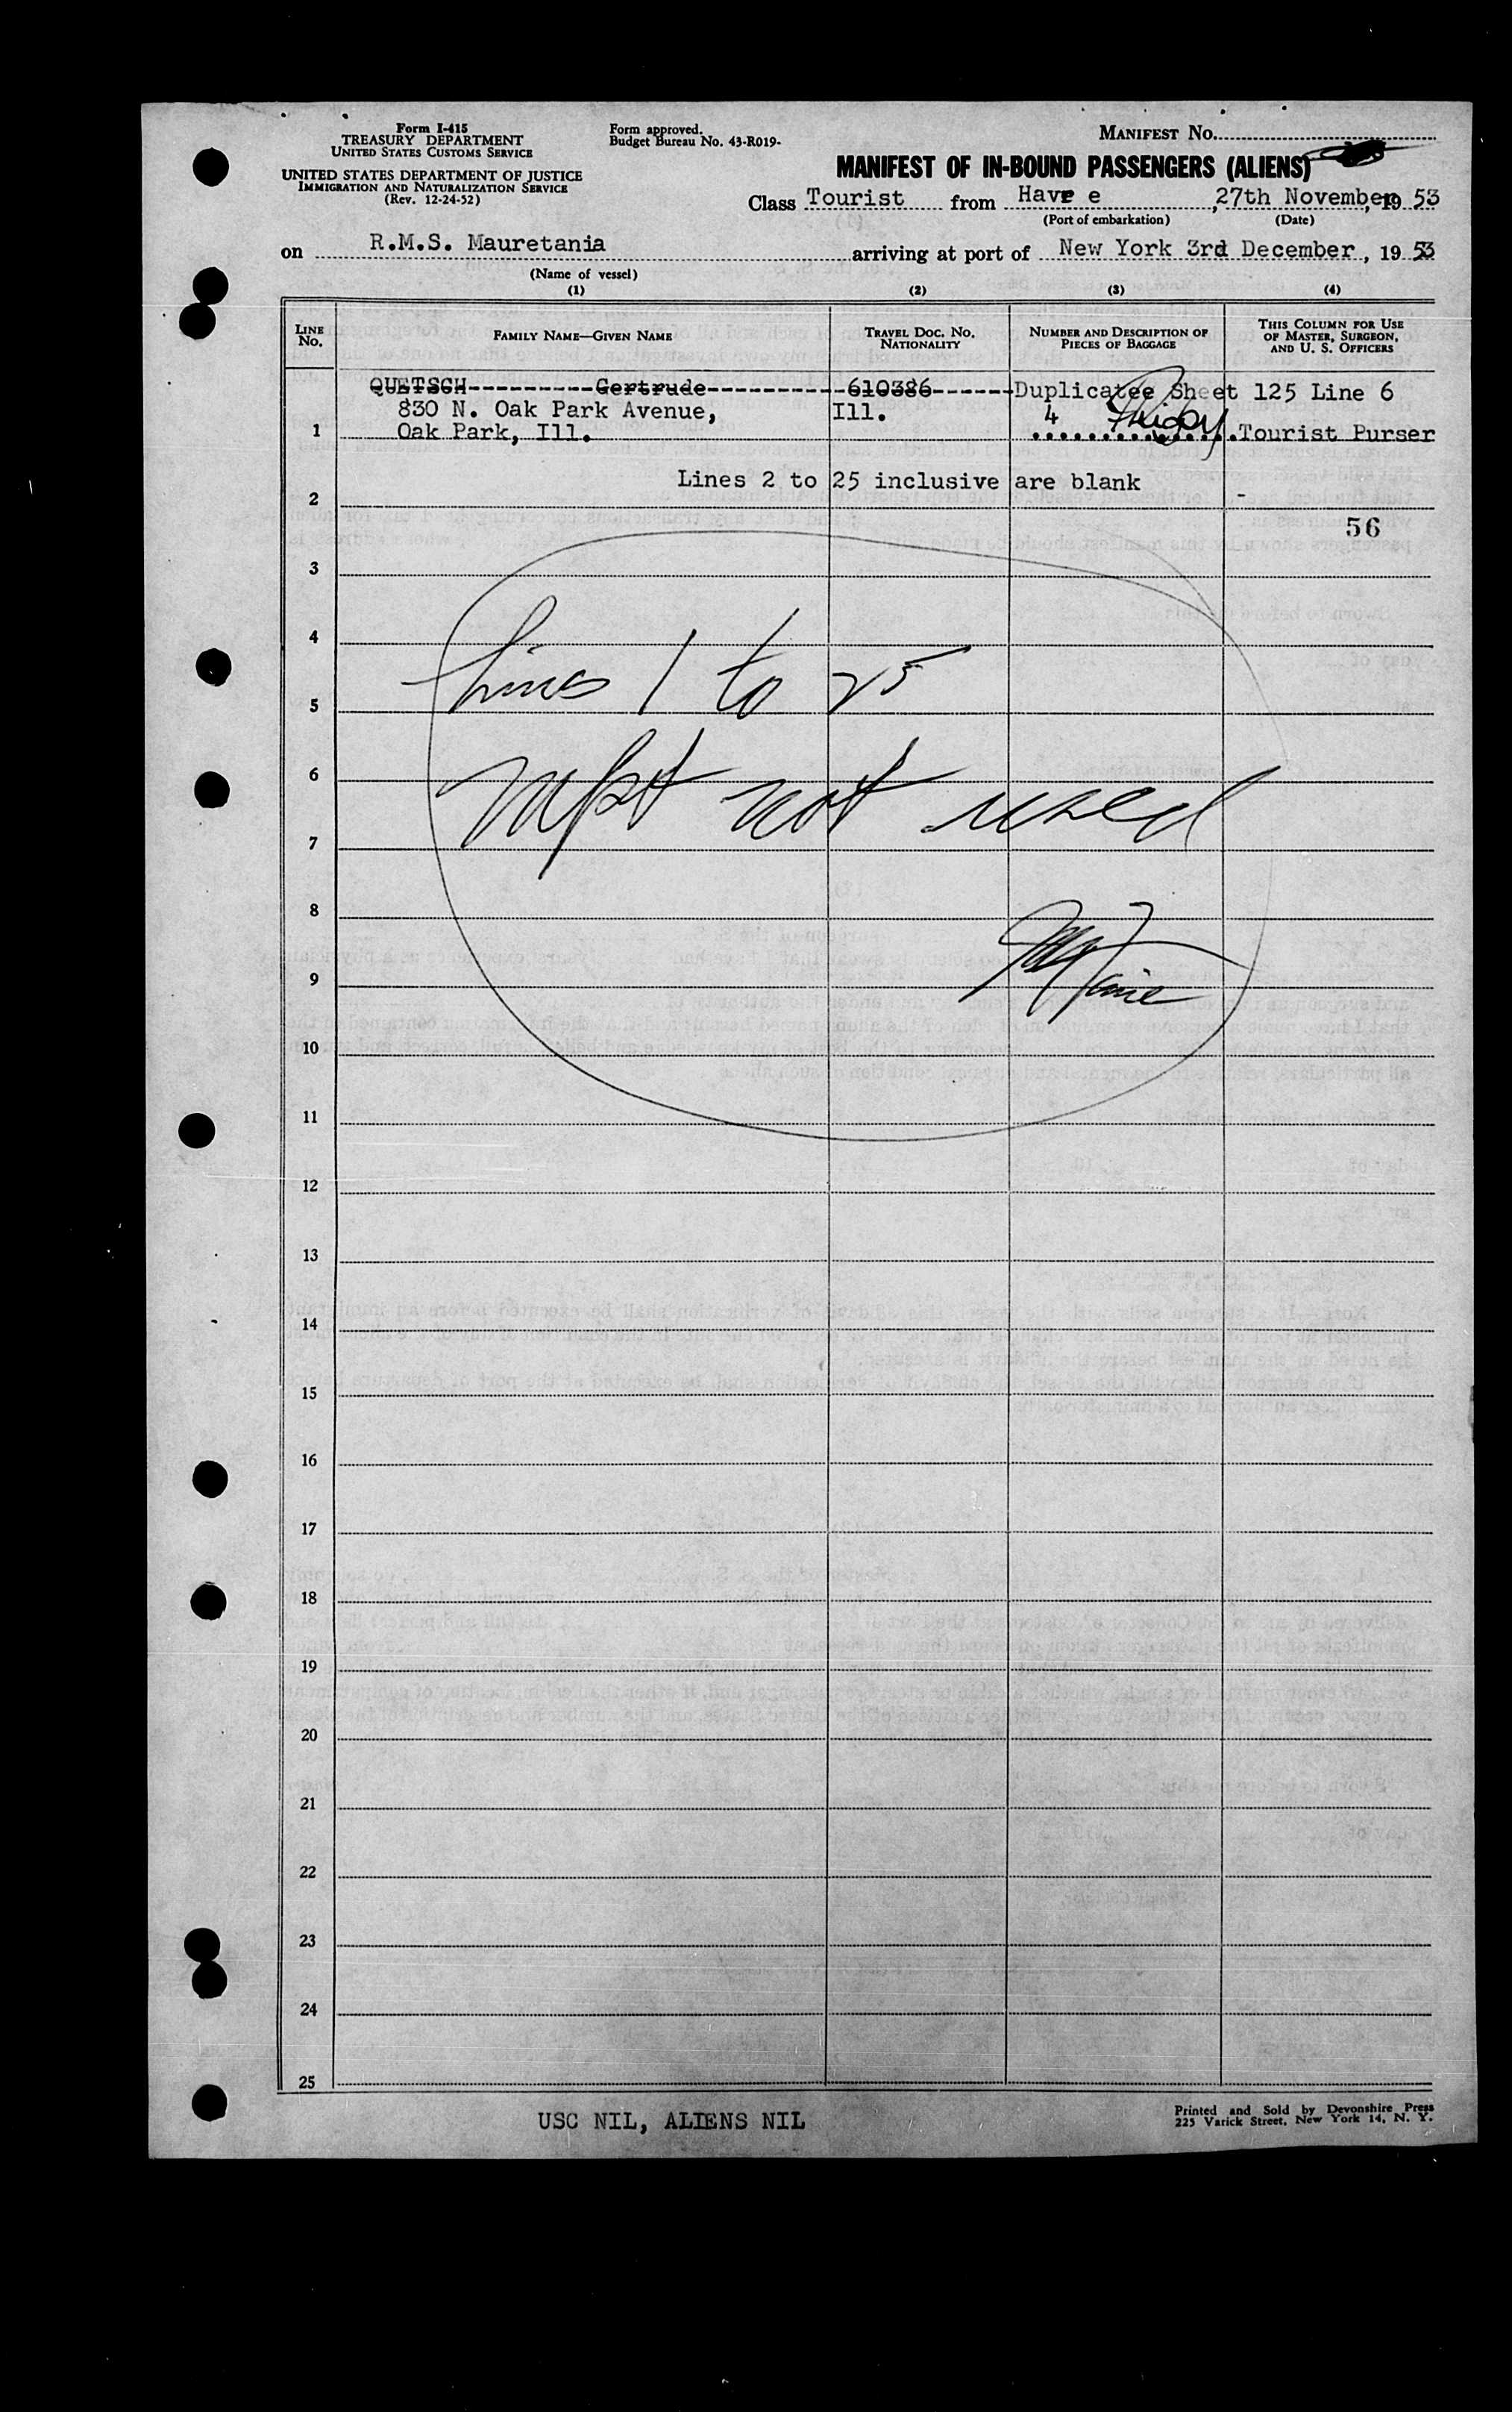 Form I-415
TREASURY DEPARTMENT
UNITED STATES CUSTOMS SERVICE
UNITED STATES DEPARTMENT OF JUSTICE
IMMIGRATION AND NATURALIZATION SERVICE
(Rev. 12-24-52)
Form approved.
Budget Bureau No. 43-R019-
MANIFEST NO.
MANIFEST OF IN-BOUND PASSENGERS (ALIENS)
Class Tourist from Havre, 27th November, 19 53
(Port of embarkation) (Date)
on R.M.S. Mauretania arriving at port of New York 3rd December, 19 53
(Name of vessel)
(1) (2) (3) (4)
LINE No. FAMILY NAME—GIVEN NAME TRAVEL DOC. NO. NATIONALITY NUMBER AND DESCRIPTION OF PIECES OF BAGGAGE THIS COLUMN FOR USE OF MASTER, SURGEON, AND U. S. OFFICERS
QUETSCH----------Gertrude-----------610386------Duplicatee Sheet 125 Line 6
830 N. Oak Park Avenue, Ill. 4
1 Oak Park, Ill. Tourist Purser
Lines 2 to 25 inclusive are blank -
2
56
3
4
Lines 1 to 25
5
6
not used
7
8
9
10
11
12
13
14
15
16
17
18
19
20
21
22
23
24
25
USC NIL, ALIENS NIL
Printed and Sold by Devonshire Press
225 Varick Street, New York 14, N. Y.